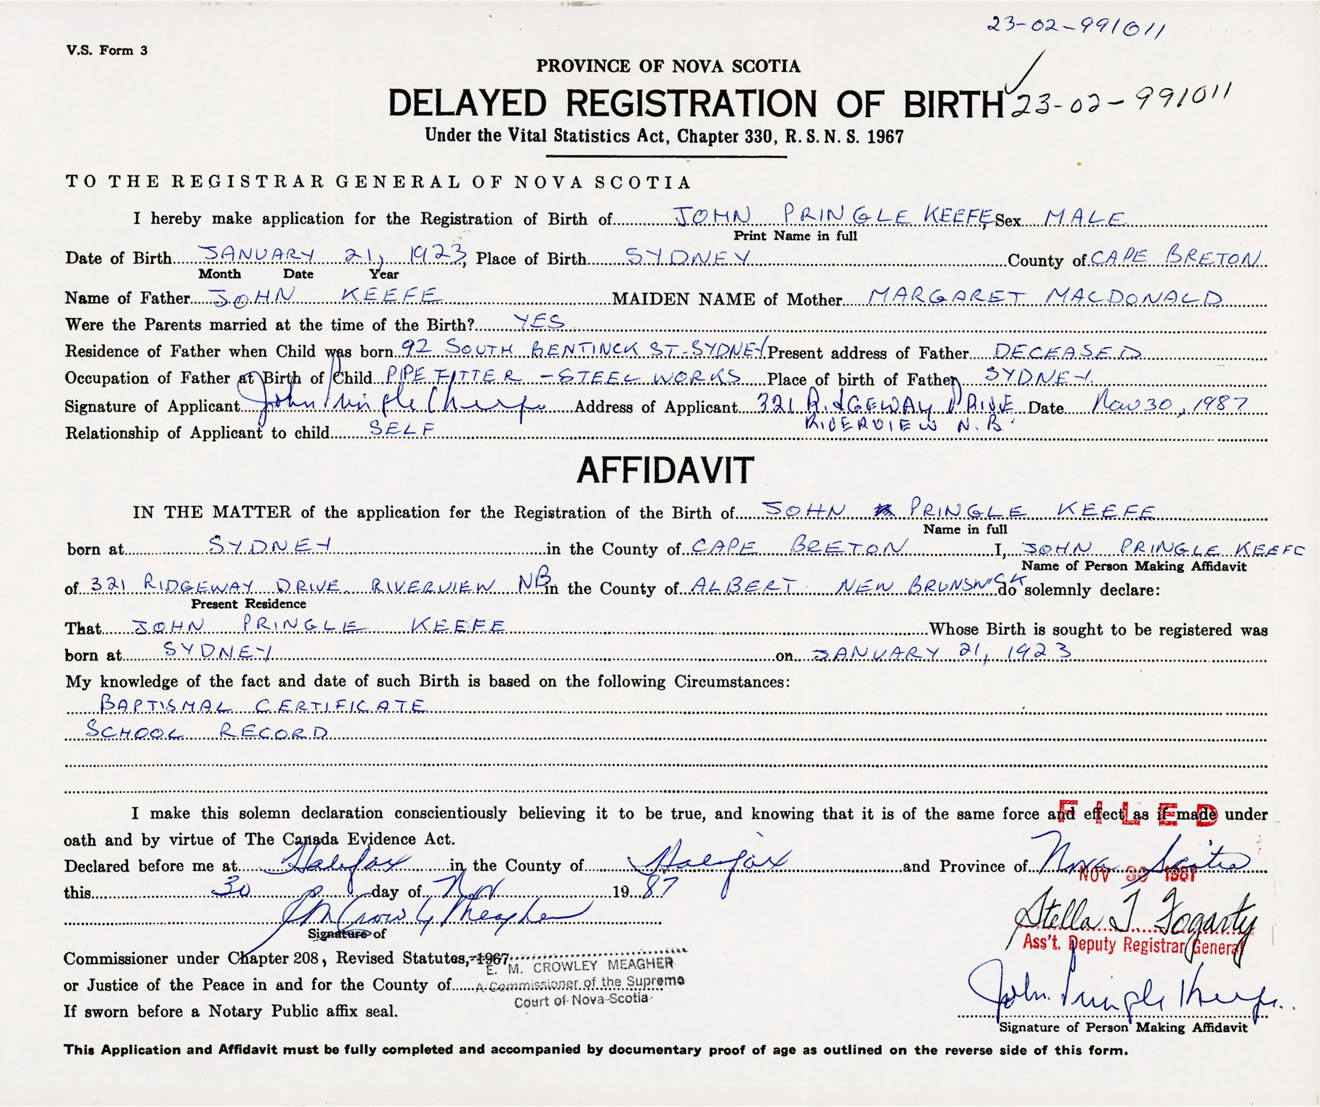 23-02-991011
V.S. Form 3
PROVINCE OF NOVA SCOTIA
DELAYED REGISTRATION OF BIRTH 23-02-991011
Under the Vital Statistics Act, Chapter 330, R. S. N. S. 1967
TO THE REGISTRAR GENERAL OF NOVA SCOTIA
I hereby make application for the Registration of Birth of JOHN PRINGLE KEEFE, Sex MALE
Print Name in full
Date of Birth JANUARY 21, 1923, Place of Birth SYDNEY County of CAPE BRETON
Month Date Year
Name of Father JOHN KEEFE MAIDEN NAME of Mother MARGARET MACDONALD
Were the Parents married at the time of the Birth? YES
Residence of Father when Child was born 92 SOUTH BENTINCK ST-SYDNEY Present address of Father DECEASED
Occupation of Father at Birth of Child PIPE FITTER - STEEL WORKS Place of birth of Father SYDNEY
Signature of Applicant John Pringle Address of Applicant 321 RIDGEWAY DRIVE Date Nov 30, 1987
RIVERVIEW N.B.
Relationship of Applicant to child SELF
AFFIDAVIT
IN THE MATTER of the application for the Registration of the Birth of JOHN PRINGLE KEEFE
Name in full
born at SYDNEY in the County of CAPE BRETON I, JOHN PRINGLE KEEFE
Name of Person Making Affidavit
of 321 RIDGEWAY DRIVE RIVERVIEW NB in the County of ALBERT NEW BRUNSWICK do solemnly declare:
Present Residence
That JOHN PRINGLE KEEFE Whose Birth is sought to be registered was
born at SYDNEY on JANUARY 21, 1923
My knowledge of the fact and date of such Birth is based on the following Circumstances:
BAPTISMAL CERTIFICATE
SCHOOL RECORD
I make this solemn declaration conscientiously believing it to be true, and knowing that it is of the same force and effect as if made under
FILED
oath and by virtue of The Canada Evidence Act.
Declared before me at Halifax in the County of Halifax and Province of Nova Scotia
NOV 30 1987
this 30 day of Nov 1987
E M Crowley Meagher
Stella T. Fogarty
Signature of
Ass't. Deputy Registrar General
Commissioner under Chapter 208, Revised Statutes, 1967
E. M. CROWLEY MEAGHER
or Justice of the Peace in and for the County of
A Commissioner of the Supreme
Court of Nova Scotia
If sworn before a Notary Public affix seal.
John Pringle
Signature of Person Making Affidavit
This Application and Affidavit must be fully completed and accompanied by documentary proof of age as outlined on the reverse side of this form.